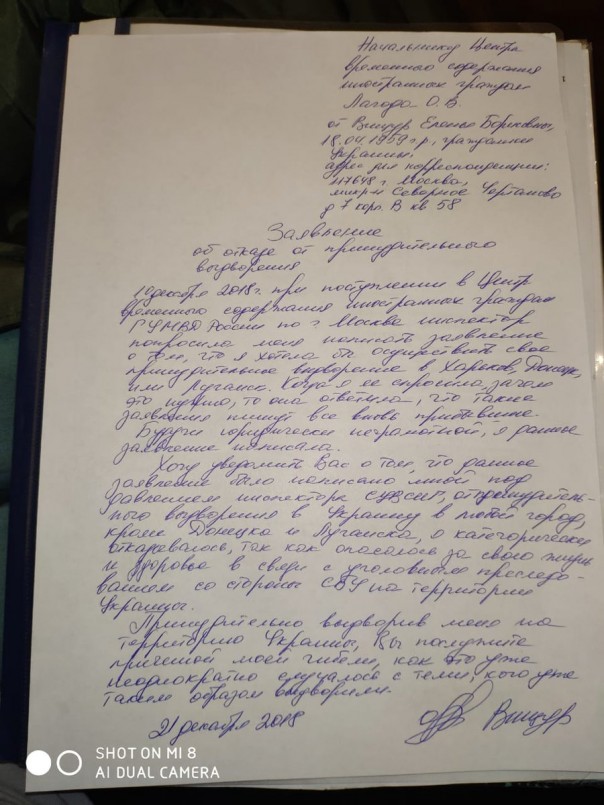 Начальнику Центра
временного содержания
иностранных граждан
Лагода О.В.
от Вищур Елены Борисовны,
18.04.1959 г.р., гражданки
Украины,
адрес для корреспонденции:
117648 г. Москва,
микр-н Северное Чертаново
д 7 корп. В кв 58
Заявление
об отказе от принудительного
выдворения
декабря 2018г. при поступлении в Центр
временного содержания иностранных граждан
ГУ МВД России по г. Москва инспектор
попросила меня написать заявление
о том, что я хотела бы осуществить свое
принудительное выдворение в Харьков, Донецк,
или Луганск. Когда я ее спросила зачем
это нужно, то она ответила, что такие
заявления пишут все вновь прибывшие.
Будучи юридически неграмотной, я данное
заявление написала.
Хочу уведомить Вас о том, что данное
заявление было написано мной под
давлением инспектора, от принудитель-
ного выдворения в Украину в любой город,
кроме Донецка и Луганска, я категорически
отказываюсь, так как опасаюсь за свою жизнь
и здоровье в связи с уголовным преследо-
ванием со стороны СБУ на территории
Украины.
Принудительно выдворив меня на
территорию Украины, Вы послужите
причиной моей гибели, как это уже
неоднократно случалось с теми, кого уже
таким образом выдворили.
21 декабря 2018 Вищур
SHOT ON MI 8
AI DUAL CAMERA